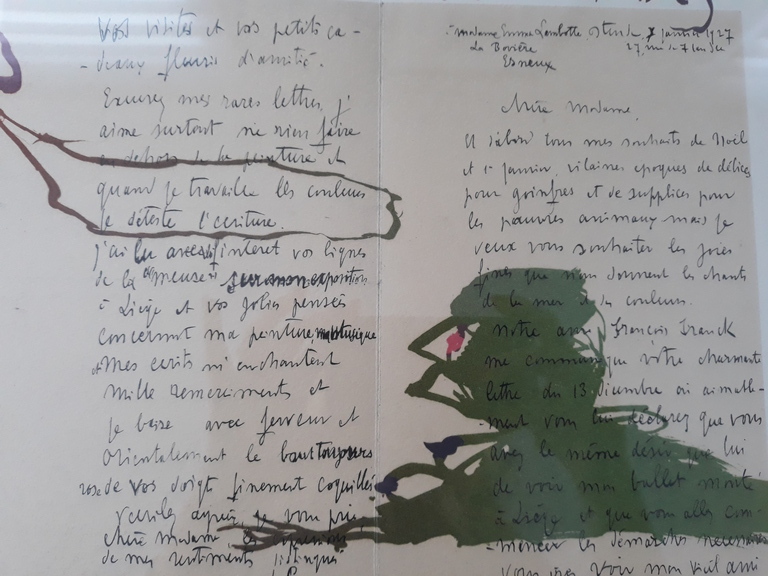 Vos visites et vos petits ca-
-deaux fleuris d'amitié.
Excusez mes rares lettres, j'
aime surtout ne rien faire
en dehors de la peinture et
quand je travaille les couleurs
je déteste l'écriture.
J'ai lu avec intéret vos lignes
de la "meuse" sur mon exposition
à Liège et vos jolies pensées
concernant ma peinture, ma musique
et mes ecrits m'enchantent
mille remerciments et
je baise avec ferveur et
orientalement le bout toujours
rose de vos doigt finement coquillés
Veuillez agréer je vous prie,
chère madame les expressions
de mes sentiments distingués
à madame Emma Lambotte, Ostende, 7 janvier 1927
La Bovière 27, rue de Flandre
Esneux
Chère Madame,
et d'abord tous mes souhaits de Noël
et 1er janvier, vilaines epoques de délices
pour goinfres et de supplices pour
les pauvres animaux mais je
veux vous souhaiter les joies
fines que nous donnent les chants
de la mer et des couleurs.
Notre ami François Franck
me communique votre charmante
lettre du 13 décembre où aimable-
-ment vous lui déclarez que vous
avez le même désir que lui
de voir mon ballet monté
à Liège et que vous allez com-
-mencer les démarches necessaires
voir mon vieil ami